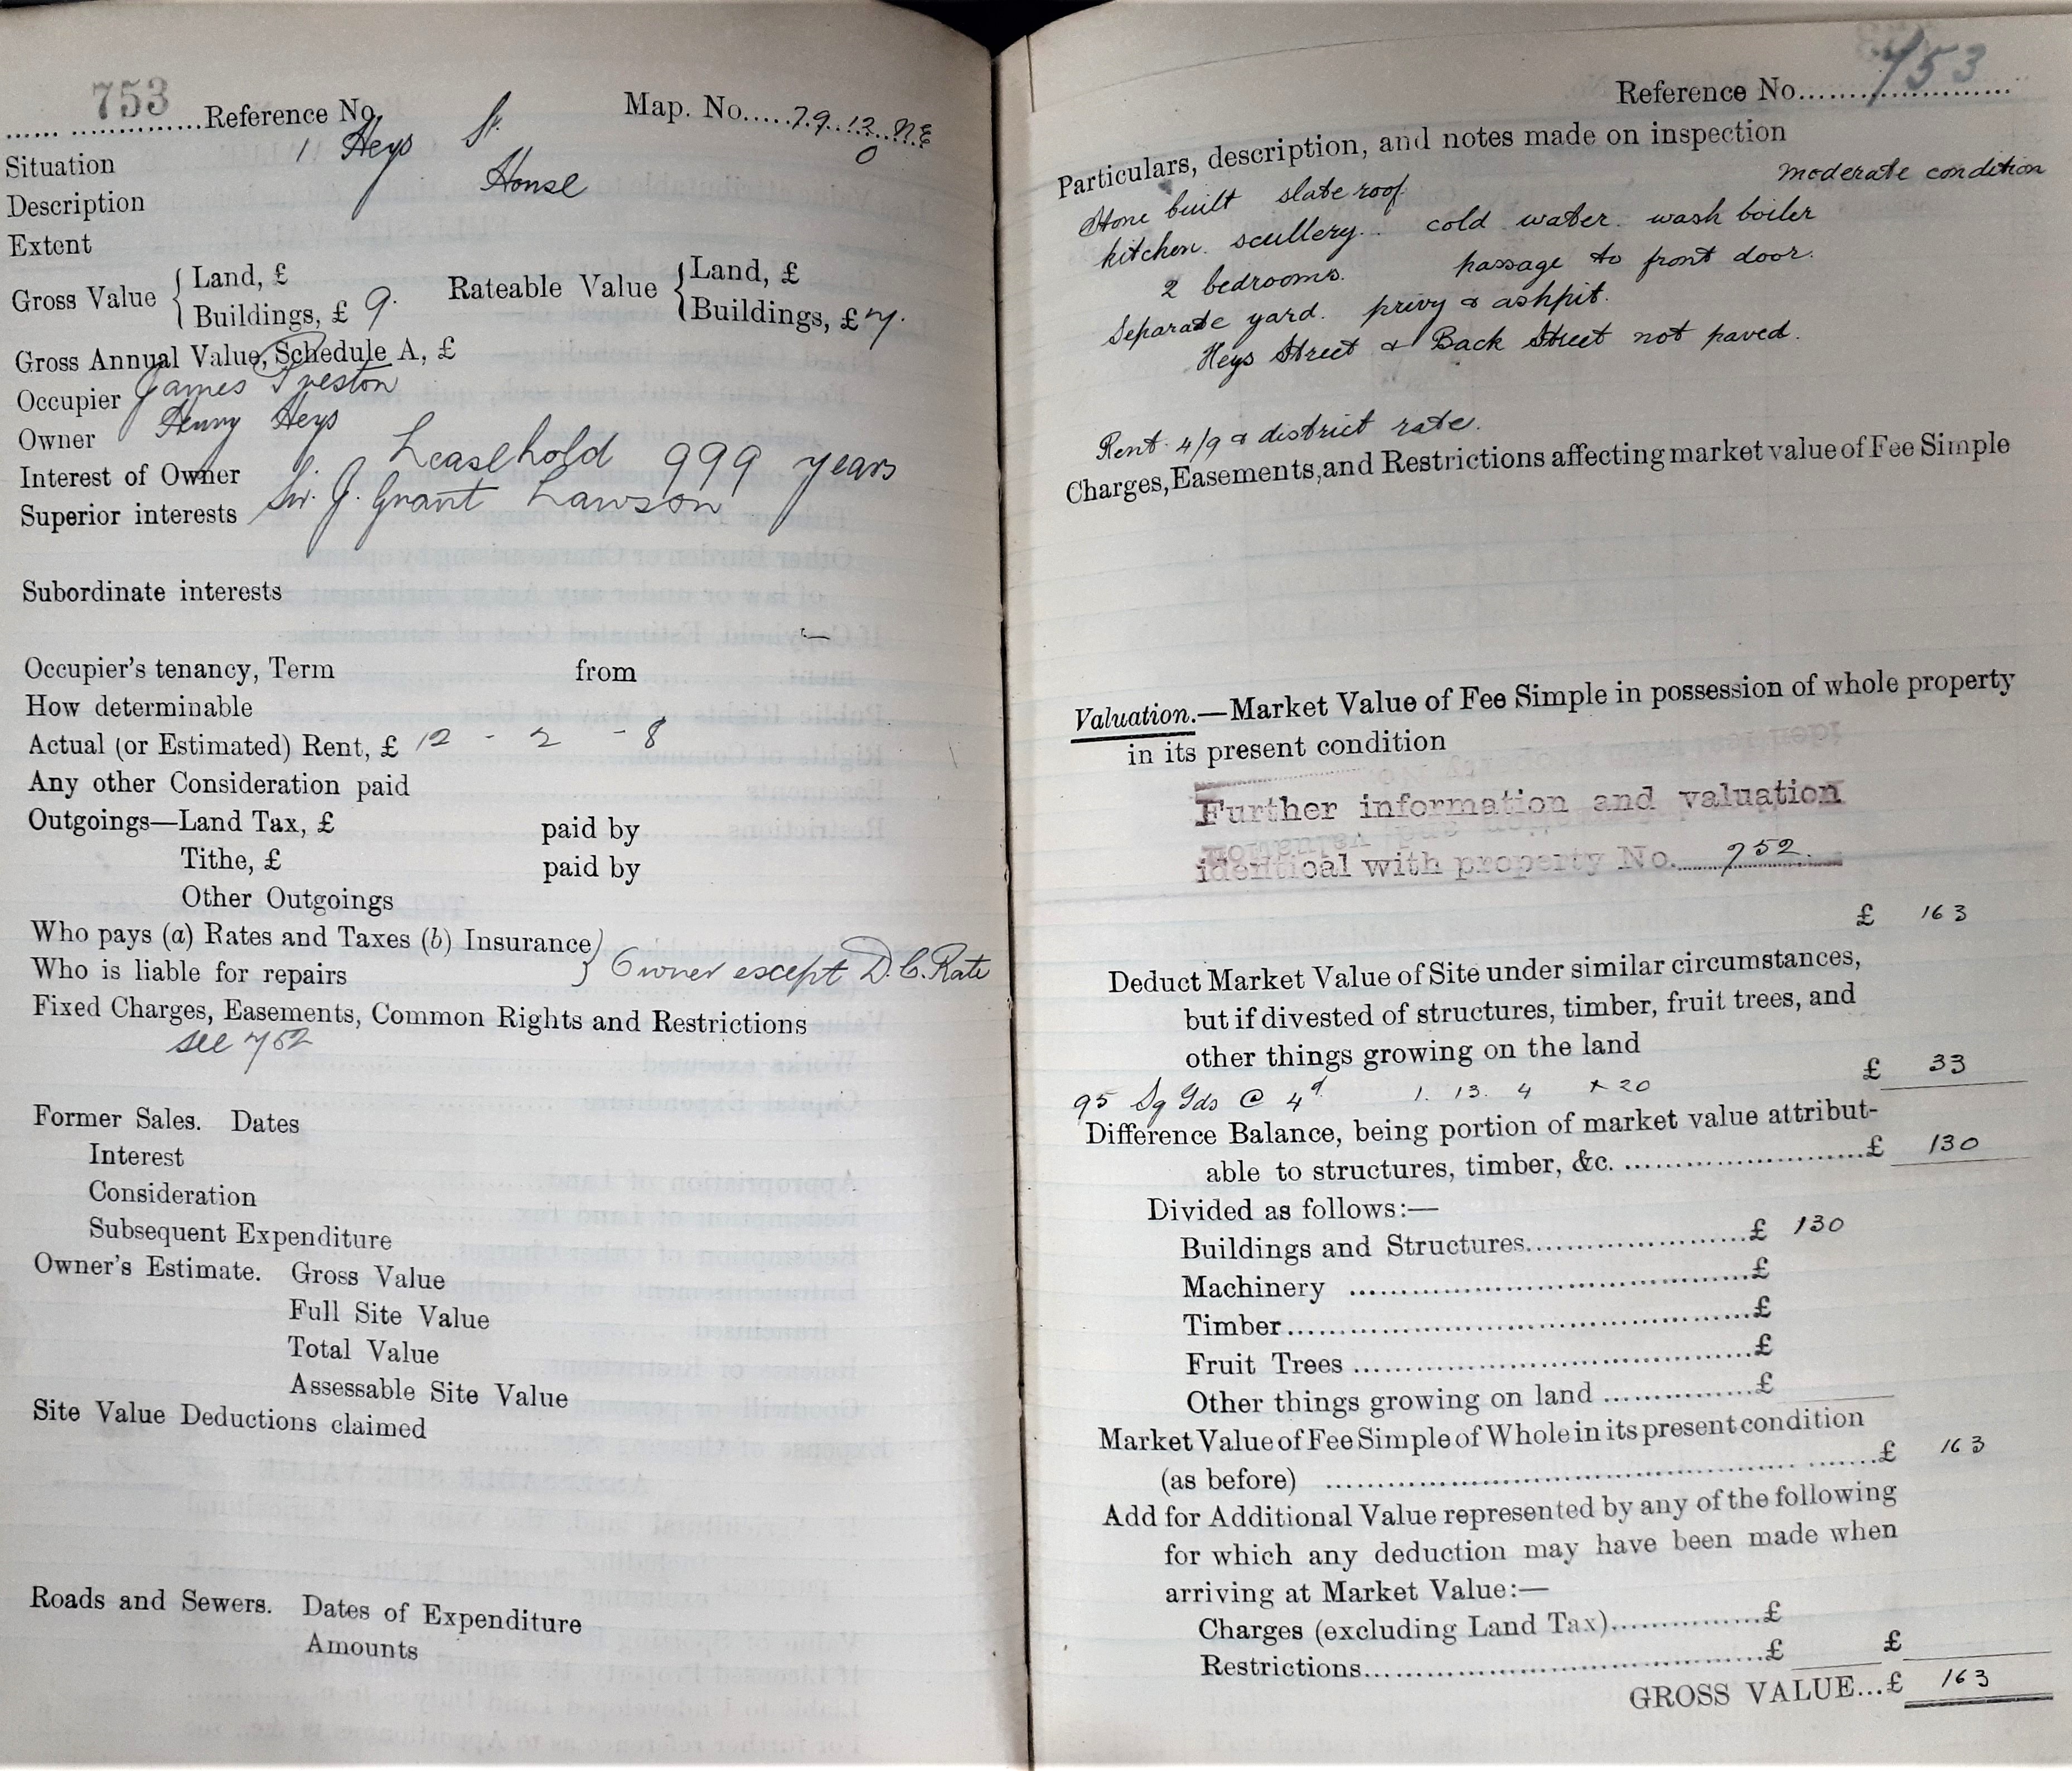 753 Reference No. Map. No. 79.13 NE
0
Situation 1 Heys St.
Description House
Extent
Gross Value { Land, £ Rateable Value { Land, £
Buildings, £ 9. Buildings, £ 7.
Gross Annual Value, Schedule A, £
Occupier James Preston
Owner Henry Heys
Interest of Owner Leasehold 999 years
Superior interests Sir. J. Grant Lawson
Subordinate interests
Occupier's tenancy, Term from
How determinable
Actual (or Estimated) Rent, £ 12 - 2 - 8
Any other Consideration paid
Outgoings—Land Tax, £ paid by
Tithe, £ paid by
Other Outgoings
Who pays (a) Rates and Taxes (b) Insurance }
Who is liable for repairs } Owner except D. C. Rate
Fixed Charges, Easements, Common Rights and Restrictions
see 752
Former Sales. Dates
Interest
Consideration
Subsequent Expenditure
Owner's Estimate. Gross Value
Full Site Value
Total Value
Assessable Site Value
Site Value Deductions claimed
Roads and Sewers. Dates of Expenditure
Amounts
Reference No. 753
Particulars, description, and notes made on inspection
moderate condition
Stone built slate roof
kitchen. scullery. cold water. wash boiler
2 bedrooms. passage to front door.
Separate yard. privy & ashpit.
Heys Street & Back Street not paved.
Rent 4/9 & district rate.
Charges, Easements, and Restrictions affecting market value of Fee Simple
Valuation.—Market Value of Fee Simple in possession of whole property
in its present condition
Further information and valuation
identical with property No. 752.
£ 163
Deduct Market Value of Site under similar circumstances,
but if divested of structures, timber, fruit trees, and
other things growing on the land
£ 33
95 Sq Yds @ 4d 1. 13. 4 x 20
Difference Balance, being portion of market value attribut-
able to structures, timber, &c. £ 130
Divided as follows:—
Buildings and Structures £ 130
Machinery £
Timber £
Fruit Trees £
Other things growing on land £
Market Value of Fee Simple of Whole in its present condition
(as before) £ 163
Add for Additional Value represented by any of the following
for which any deduction may have been made when
arriving at Market Value:—
Charges (excluding Land Tax) £
Restrictions £ £
GROSS VALUE...£ 163